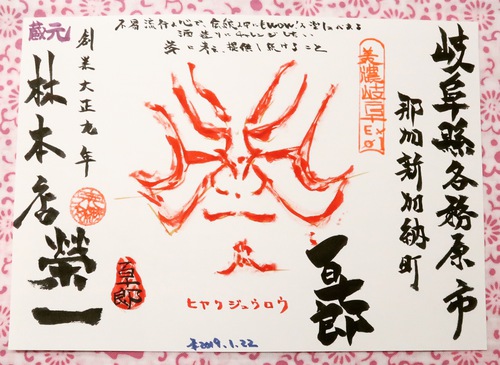 岐阜縣各務原市
那加新加納町
美濃岐阜
不易流行の心で、伝統の中に「WOW!」を楽しみある
酒造りにチャレンジしたい
夢に考え、提供し続けること
蔵元
創業大正九年
林本店
榮一
百十郎
百十郎
ヒャクジュウロウ
2019.1.22